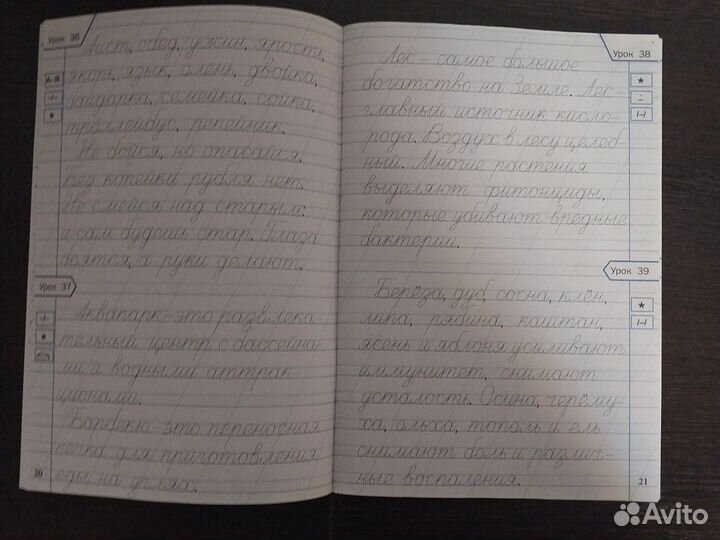 Урок 36
А–Я
Аист, обед, ужин, ярость,
якорь, язык, олень, двойка,
байдарка, семейка, сойка,
троллейбус, репейник.
Не бойся, но опасайся.
Без копейки рубля нет.
Не смейся над старым:
и сам будешь стар. Глаза
боятся, а руки делают.
Урок 37
Аквапарк – это развлека-
тельный центр с бассейна-
ми и водными аттрак-
ционами.
Барбекю – это переносная
печка для приготовления
еды на углях.
20
Урок 38
Лес – самое большое
богатство на Земле. Лес –
главный источник кисло-
рода. Воздух в лесу целеб-
ный. Многие растения
выделяют фитонциды,
которые убивают вредные
бактерии.
Урок 39
Берёза, дуб, сосна, клён,
липа, рябина, каштан,
ясень и яблоня усиливают
иммунитет, снимают
усталость. Осина, черёму-
ха, ольха, тополь и ель
снимают боль и различ-
ные воспаления.
21
Avito